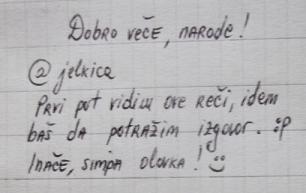 Dobro veče, narode!
@ jelkica
Prvi put vidim ove reči, idem
baš da potražim izgovor. :P
Inače, simpa olovka! :)